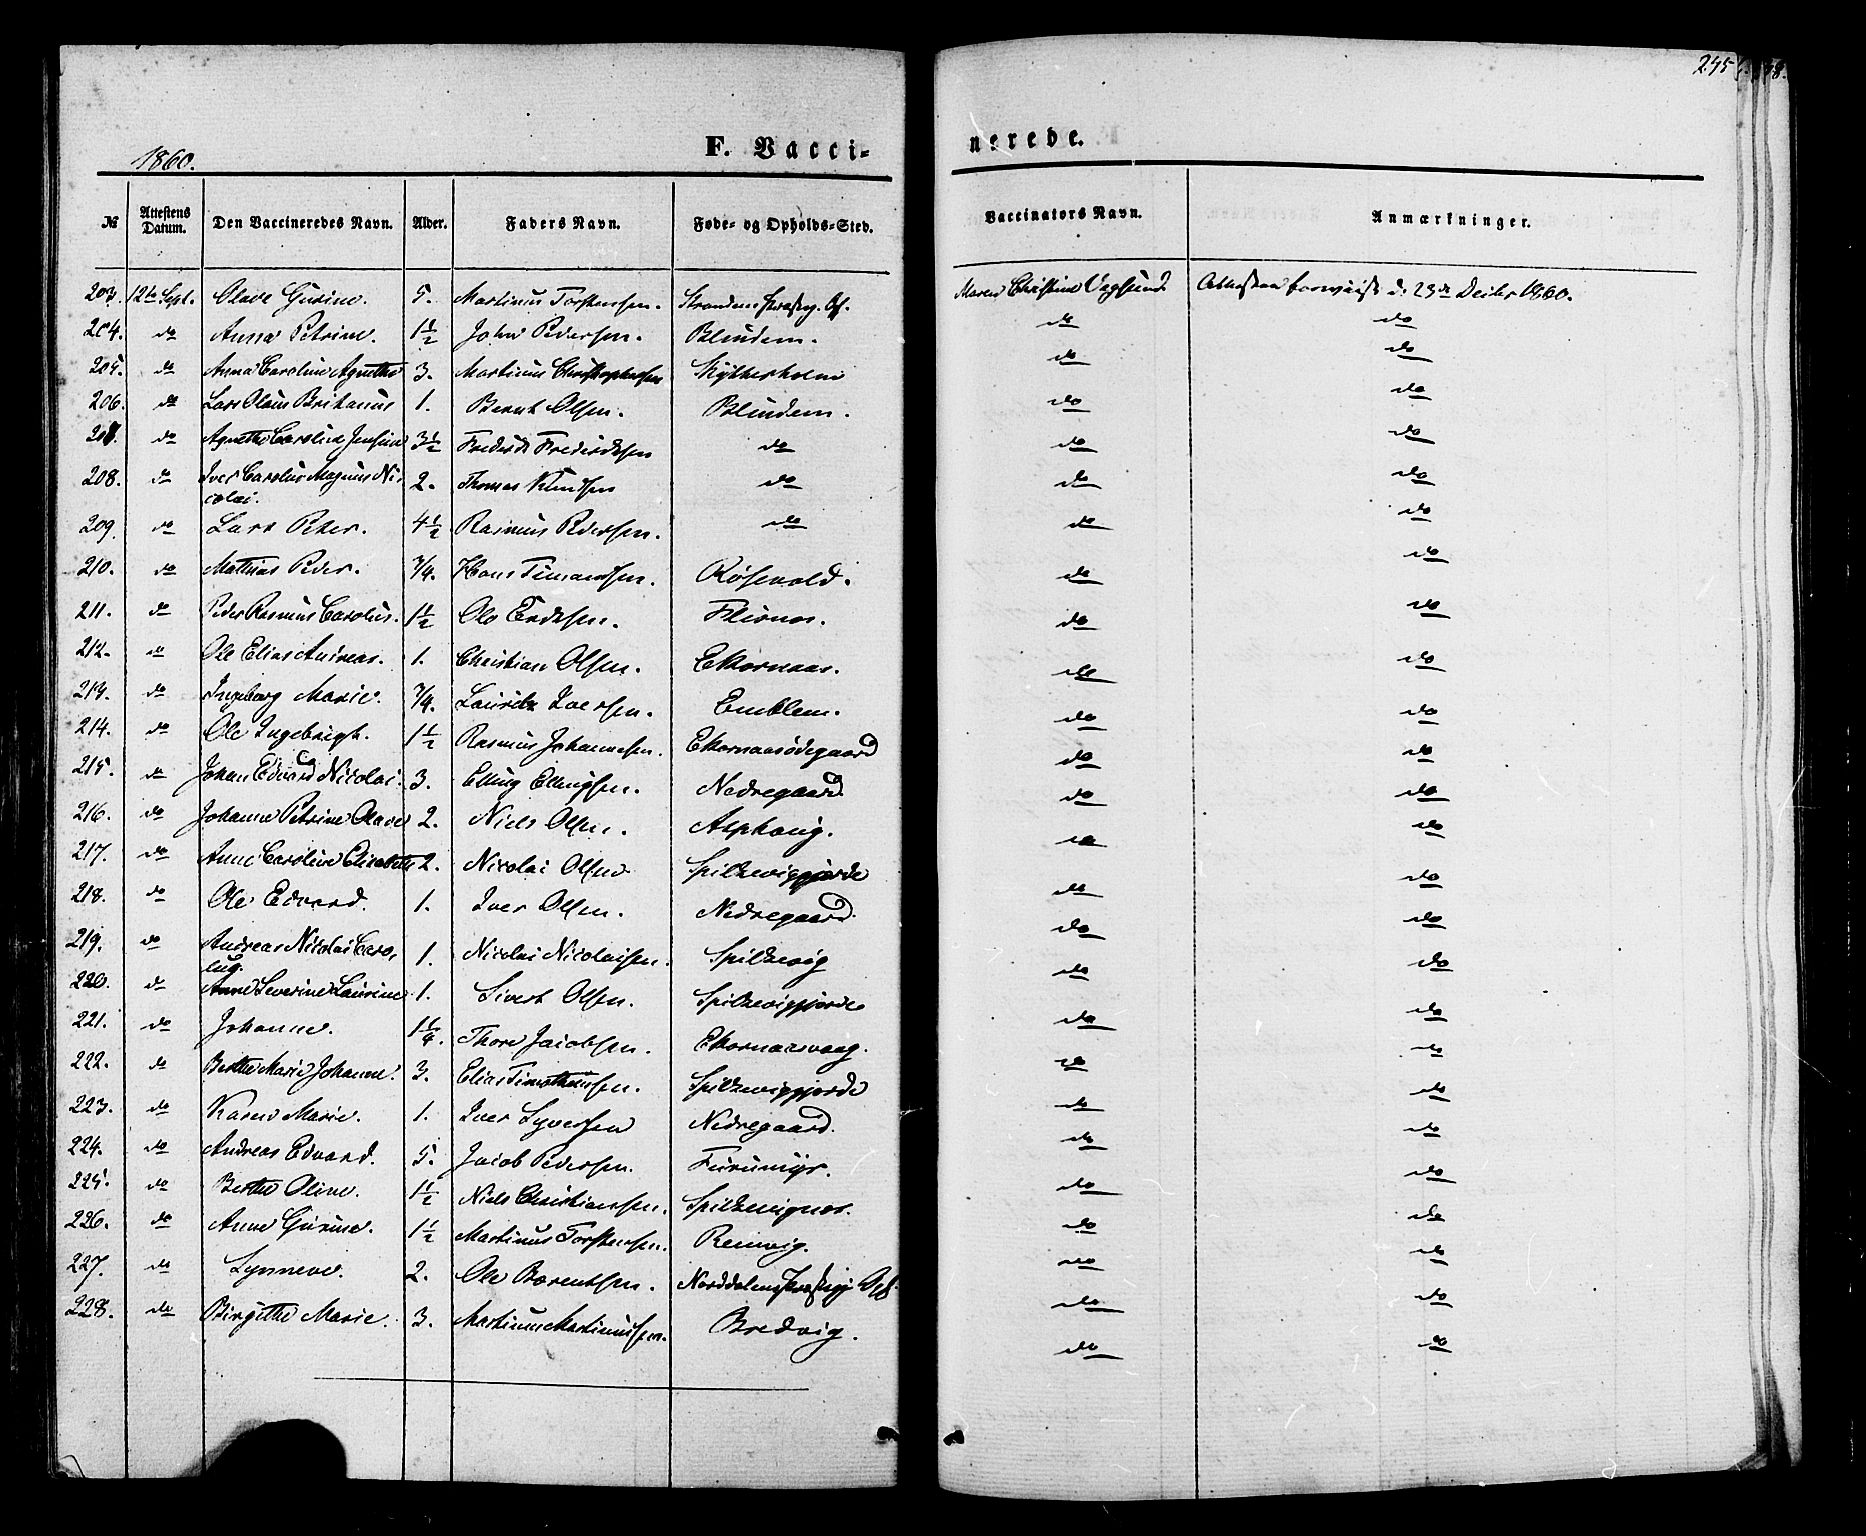 245
1860.
F. Vacci-
nerede.
№ Attestens Datum. Den Vaccineredes Navn. Alder. Faders Navn. Føde- og Opholds-Sted. Vaccinators Navn. Anmærkninger.
203. 12te Sept. Olave Gurine. 5. Martinus Torstensen. Strandens Maren Christine d. 23de Decbr 1860.
204. do Anna Petrine. 1½ John Pedersen. Blindem. do do
205. do Anna Caroline Agnethe 3. Martinus Christophersen Kytterholm do do
206. do Lars Olaus Britanus 1. Bernt Olsen. Blindem. do do
207. do Agnethe Caroline Jensine 3½ Frederik Frederiksen do do do
208. do Iver Carolus Magnus Ni-
colai. 2. Thomas Knudsen do do do
209. do Lars Peter. 4½ Rasmus Pedersen. do do do
210. do Mathias Peder. ¾. Hans Timansen. Røsevold. do do
211. do Peder Rasmus Carolus. 1½ Ole Eriksen. Flisnes. do do
212. do Ole Elias Andreas. 1. Christian Olsen. Ekornaas. do do
213. do Ingeborg Marie. ¾. Lauritz Iversen. Emblem. do do
214. do Ole Ingebrigt. 1½ Rasmus Johannesen. Ekornaasødegaard do do
215. do Johan Edvard Nicolai. 3. Elling Ellingsen. Nedregaard do do
216. do Johanne Petrine Olave 2. Niels Olsen. Asphoug. do do
217. do Anne Caroline Elisabeth 2. Nicolai Olsen Spilkeviggjærde do do
218. do Ole Edvard. 1. Iver Olsen. Nedregaard. do do
219. do Andreas Nicolai Caro-
lus. 1. Nicolai Nicolaisen. Spilkevig do do
220. do Anne Severine Laurine 1. Sivert Olsen. Spilkeviggjærde do do
221. do Johanne. 1¼. Thore Jacobsen. Ekornaasvaag. do do
222. do Berthe Marie Johanne. 3. Elias Timotheussen. Spilkeviggjærde do do
223. do Karen Marie. 1. Iver Syversen Nedregaard. do do
224. do Andreas Edvard. 5. Jacob Pedersen. Furumyr. do do
225. do Berthe Oline. 1½ Niels Christiansen. Spilkevignes. do do
226. do Anne Gurine. 1½ Martinus Torstensen. Remvig. do do
227. do Synneve. 2. Ole Barentsen. Norddalens do do
228. do Birgithe Marie. 3. Martinus Martinussen. Bredvig. do do